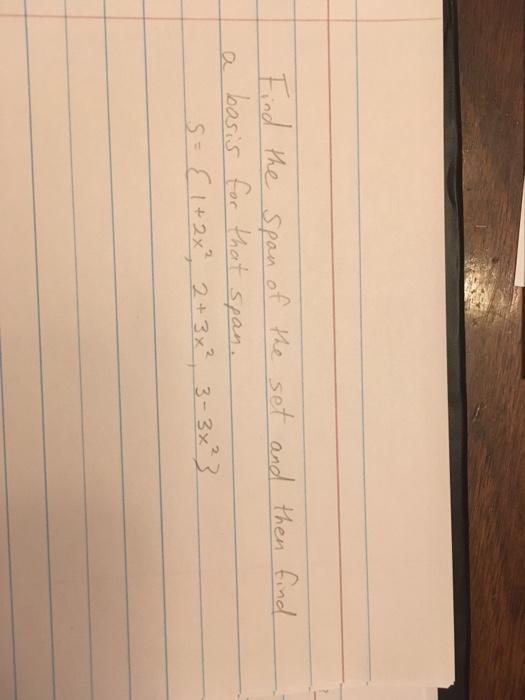 Find the span of the set and then find
a basis for that span.
S = { 1+2x², 2+3x², 3-3x² }